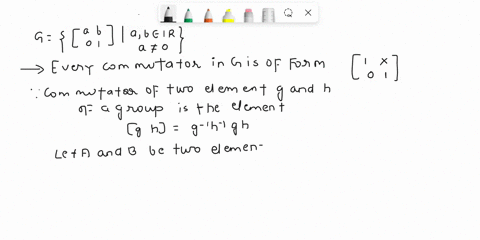 G = { [ a b ] | a, b ∈ IR }
[ 0 1 ] a ≠ 0
→ Every commutator in G is of form [ 1 x ]
[ 0 1 ]
∵ Commutator of two element g and h
of a group is the element
[g h] = g⁻¹h⁻¹ gh
Let A and B be two elemen